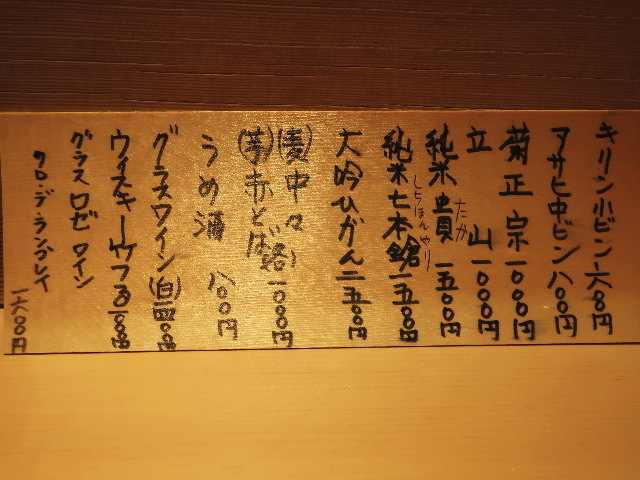 キリン小ビン六〇〇円
アサヒ中ビン八〇〇円
菊正宗一〇〇〇円
立山一〇〇〇円
純米貴一五〇〇円
たか
純米七本鎗一五〇〇円
しちほんやり
大吟ひがん二五〇〇円
(麦)中々
(芋)赤とんぼ 一〇〇〇円
うめ酒 八〇〇円
グラスワイン(白)
ウイスキー
グラスロゼワイン
クロ・デ・ラングレイ
一六〇〇円